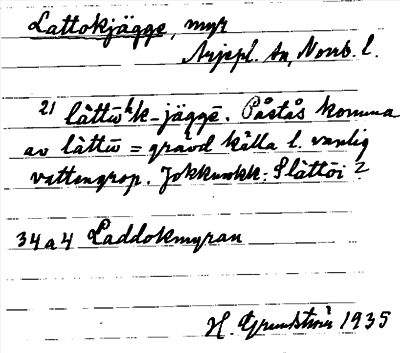 Lattokjägge, myr
Arjepl. sn, Norrb. l.
21 låttŭʰk-jäggē. Påstås komma
av låttŭ = grävd källa l. vanlig
vattengrop. Jokkmokk: Slåttōi?
34 a 4 Laddokmyran
H. Grundström 1935